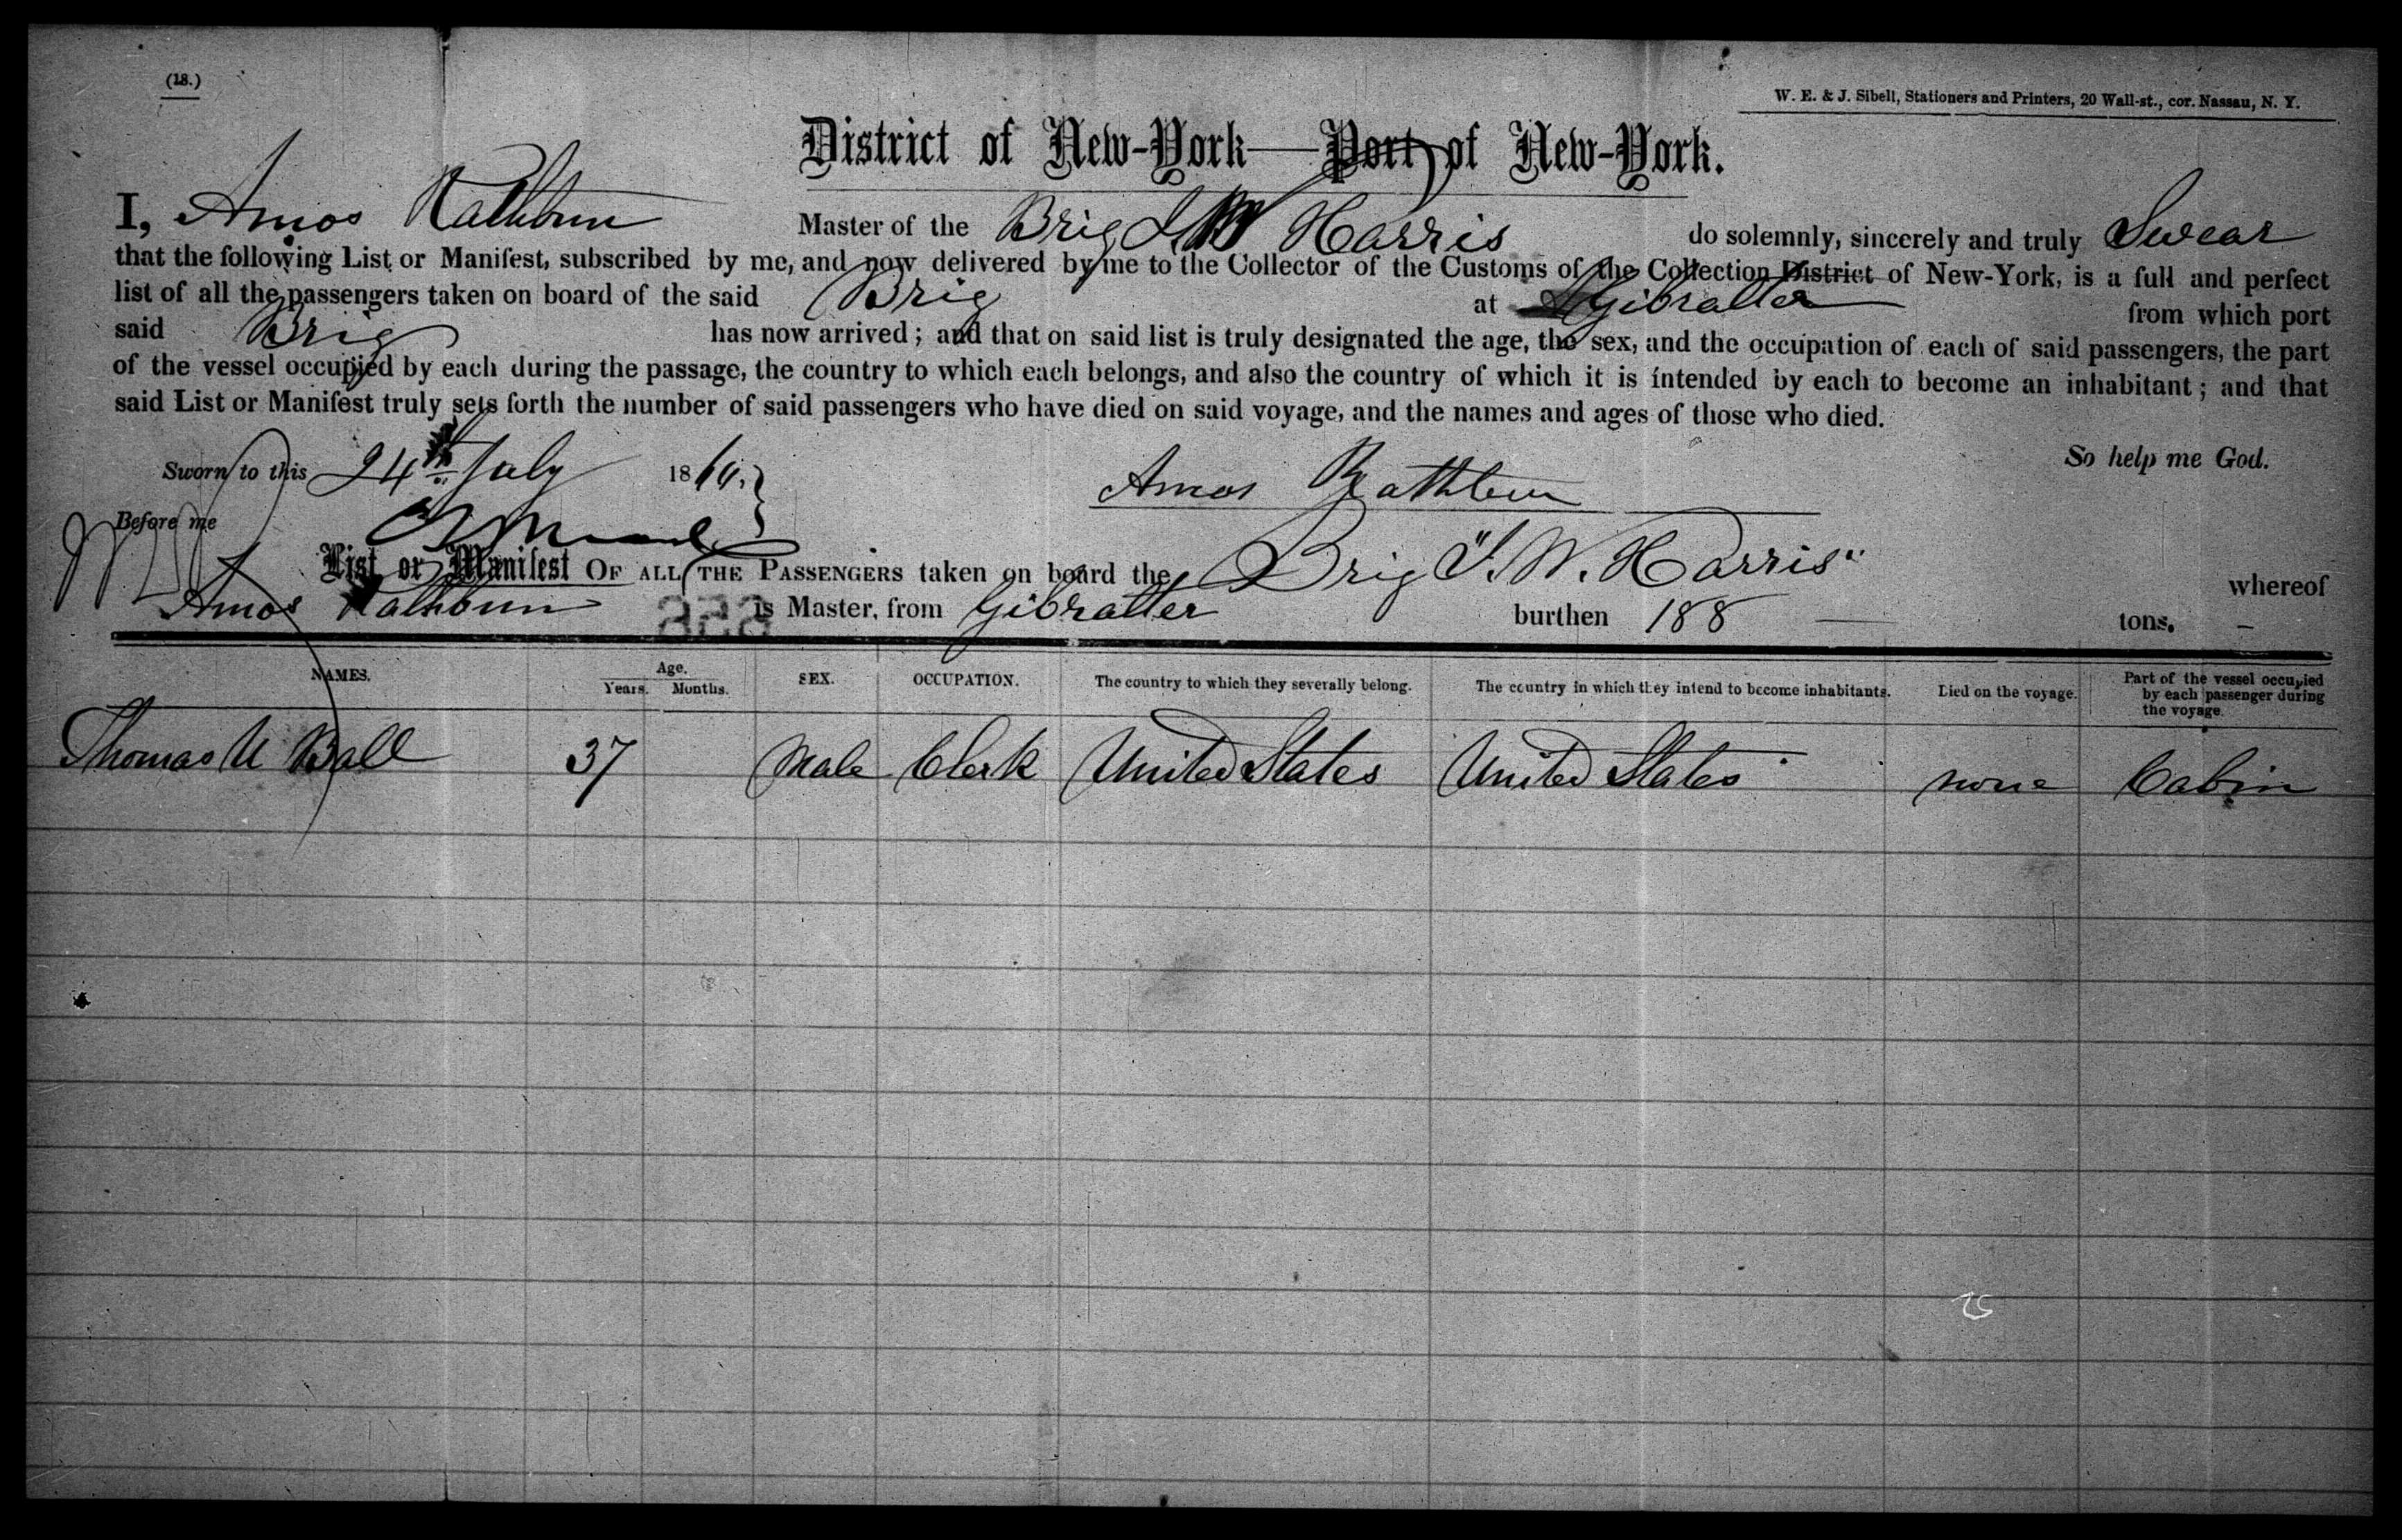 (18.)
W. E. & J. Sibell, Stationers and Printers, 20 Wall-st., cor. Nassau, N. Y.
District of New-York—Port of New-York.
I, Amos Rathbun Master of the Brig J. W. Harris do solemnly, sincerely and truly Swear
that the following List or Manifest, subscribed by me, and now delivered by me to the Collector of the Customs of the Collection District of New-York, is a full and perfect
list of all the passengers taken on board of the said Brig at Gibralter from which port
said Brig has now arrived; and that on said list is truly designated the age, the sex, and the occupation of each of said passengers, the part
of the vessel occupied by each during the passage, the country to which each belongs, and also the country of which it is intended by each to become an inhabitant; and that
said List or Manifest truly sets forth the number of said passengers who have died on said voyage, and the names and ages of those who died.
So help me God.
Sworn to this 24th July 186
Amos Rathbun
Before me
List or Manifest OF ALL THE PASSENGERS taken on board the Brig "J. W. Harris" whereof
Amos Rathbun is Master, from Gibralter burthen 188 tons.
NAMES. Age. Years. Months. SEX. OCCUPATION. The country to which they severally belong. The country in which they intend to become inhabitants. Died on the voyage. Part of the vessel occupied by each passenger during the voyage.
Thomas U Ball 37 Male Clerk United States United States none Cabin